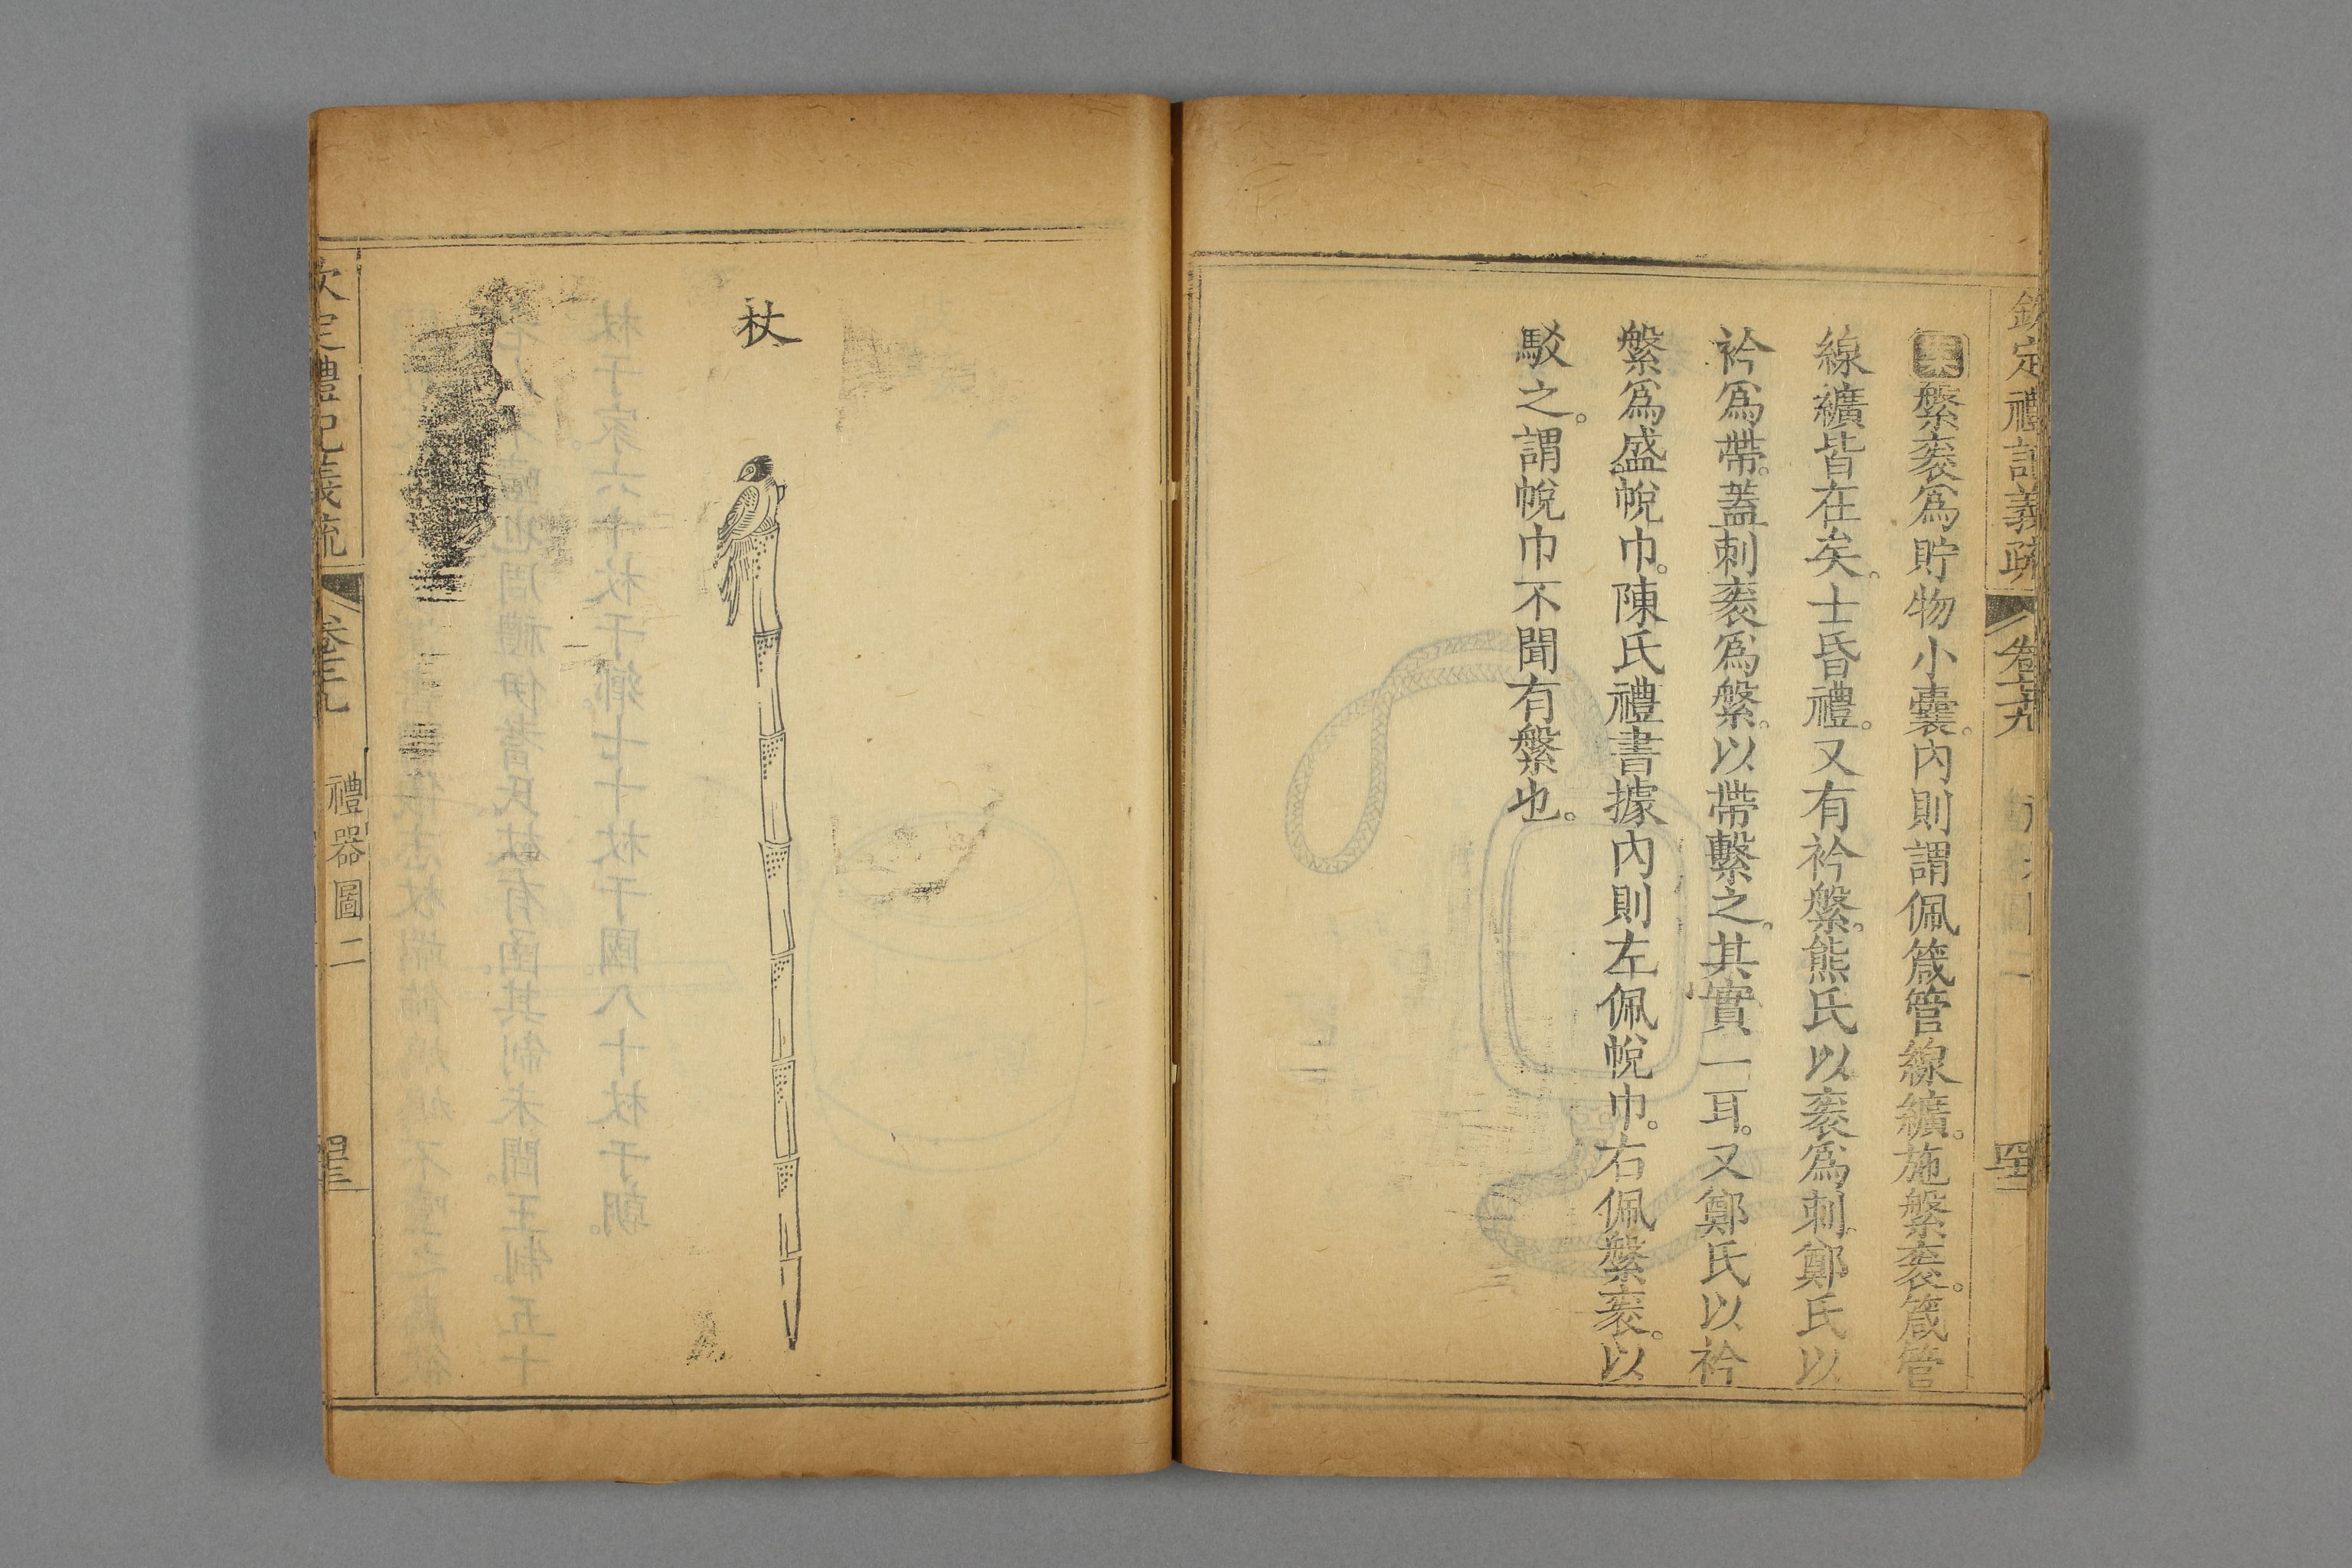 欽定禮記義疏 卷 四三
繫袠爲貯物小囊。內則謂佩箴管線纊。施繫袠。箴管
線纊皆在矣。士昏禮。又有衿繫。熊氏以袠爲刺。鄭氏以
衿爲帶。蓋刺袠爲繫。以帶繫之。其實一耳。又鄭氏以衿
繫爲盛帨巾。陳氏禮書據內則左佩帨巾。右佩繫袠。以
駁之。謂帨巾不聞有繫也。
杖
欽定禮記義疏 卷 禮器圖二